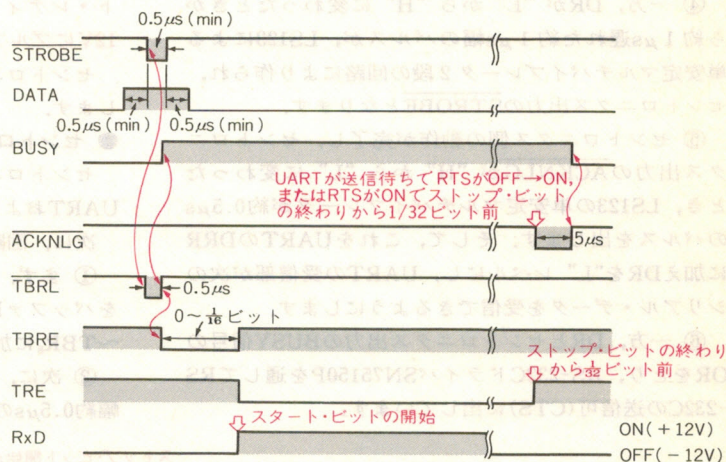 0.5μs(min)
STROBE
DATA
0.5μs(min) 0.5μs(min)
BUSY
UARTが送信待ちでRTSがOFF→ON,
またはRTSがONでストップ・ビット
の終わりから1/32ビット前
ACKNLG
5μs
TBRL
0.5μs
0～1/16ビット
TBRE
ストップ・ビットの終わり
から1/32ビット前
TRE
スタート・ビットの開始
RxD
ON(+12V)
OFF(-12V)